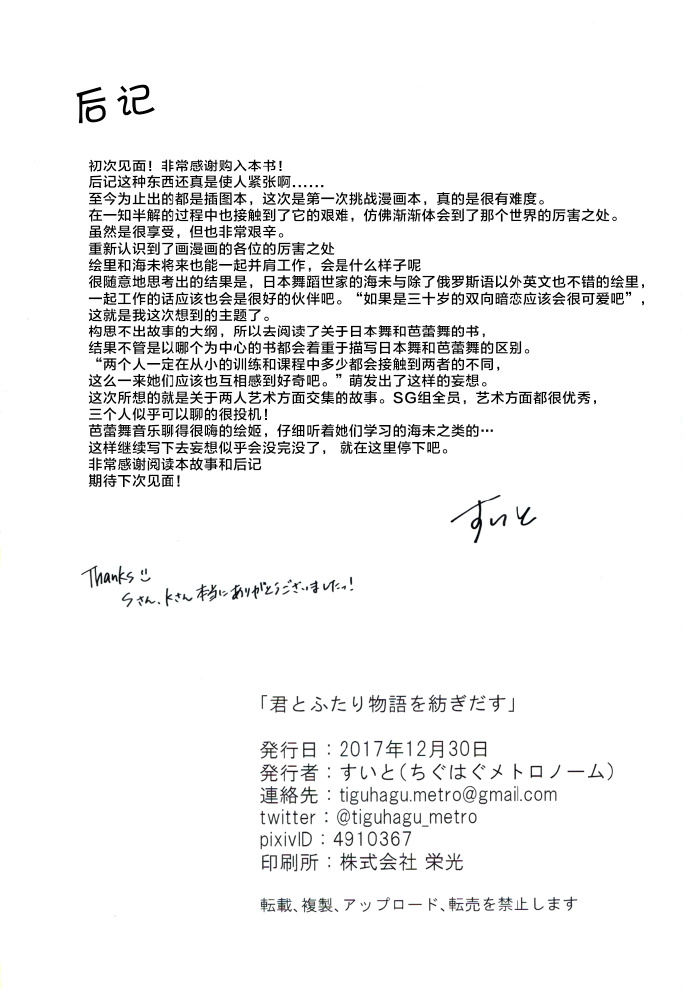 后记
初次见面！非常感谢购入本书！
后记这种东西还真是使人紧张啊......
至今为止出的都是插图本，这次是第一次挑战漫画本，真的是很有难度。
在一知半解的过程中也接触到了它的艰难，仿佛渐渐体会到了那个世界的厉害之处。
虽然是很享受，但也非常艰辛。
重新认识到了画漫画的各位的厉害之处
绘里和海未将来也能一起并肩工作，会是什么样子呢
很随意地思考出的结果是，日本舞蹈世家的海未与除了俄罗斯语以外英文也不错的绘里，
一起工作的话应该也会是很好的伙伴吧。“如果是三十岁的双向暗恋应该会很可爱吧”，
这就是我这次想到的主题了。
构思不出故事的大纲，所以去阅读了关于日本舞和芭蕾舞的书，
结果不管是以哪个为中心的书都会着重于描写日本舞和芭蕾舞的区别。
“两个人一定在从小的训练和课程中多少都会接触到两者的不同，
这么一来她们应该也互相感到好奇吧。”萌发出了这样的妄想。
这次所想的就是关于两人艺术方面交集的故事。SG组全员，艺术方面都很优秀，
三个人似乎可以聊的很投机！
芭蕾舞音乐聊得很嗨的绘姬，仔细听着她们学习的海未之类的…
这样继续写下去妄想似乎会没完没了，就在这里停下吧。
非常感谢阅读本故事和后记
期待下次见面！
すいと
Thanks
Sさん、Kさん本当にありがとうございましたっ！
「君とふたり物語を紡ぎだす」
発行日：2017年12月30日
発行者：すいと(ちぐはぐメトロノーム)
連絡先：tiguhagu.metro@gmail.com
twitter：@tiguhagu_metro
pixivID：4910367
印刷所：株式会社 栄光
転載、複製、アップロード、転売を禁止します